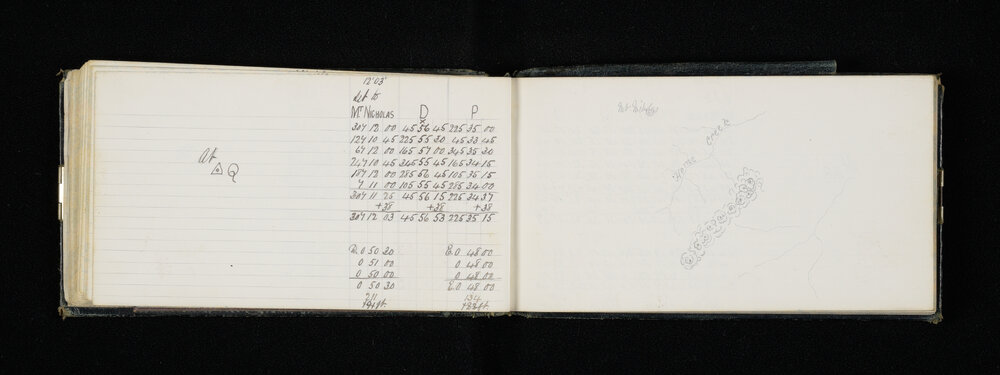 12'03"
Set to
At
△ Q
Mt NICHOLAS D P
307 12 00 45 56 45 225 35 00
127 10 45 225 55 30 45 33 45
67 12 00 165 57 00 345 35 30
247 10 45 345 55 45 165 34 15
187 12 00 285 56 45 105 35 15
7 11 00 105 55 45 285 34 00
307 11 25 45 56 15 225 34 37
+38 +38 +38
307 12 03 45 56 53 225 35 15
D. 0 50 30 E. 0 48 00
0 51 00 0 48 00
0 50 00 0 48 00
0 50 30 E. 0 48 00
211 134
creek